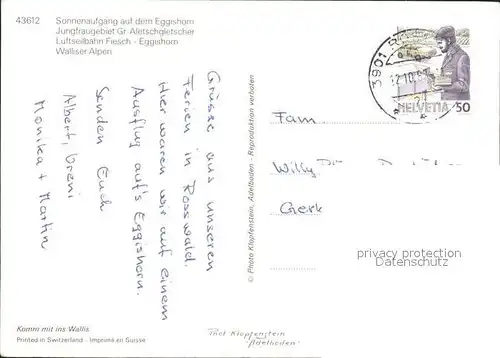 43612
Sonnenaufgang auf dem Eggishorn
Jungfraugebiet Gr. Aletschgletscher
Luftseilbahn Fiesch - Eggishorn
Walliser Alpen
Grüsse aus unseren
Ferien in Rosswald.
Hier waren wir auf einem
Ausflug auf's Eggishorn.
Senden Euch
Albert, Vreni
Monika + Martin
© Photo Klopfenstein, Adelboden - Reproduktion verboten
3901
12.10.
HELVETIA 50
Fam.
Willy
Gerk
privacy protection
Datenschutz
Komm mit ins Wallis
Printed in Switzerland - Imprimé en Suisse
Phot Klopfenstein
"Adelboden"